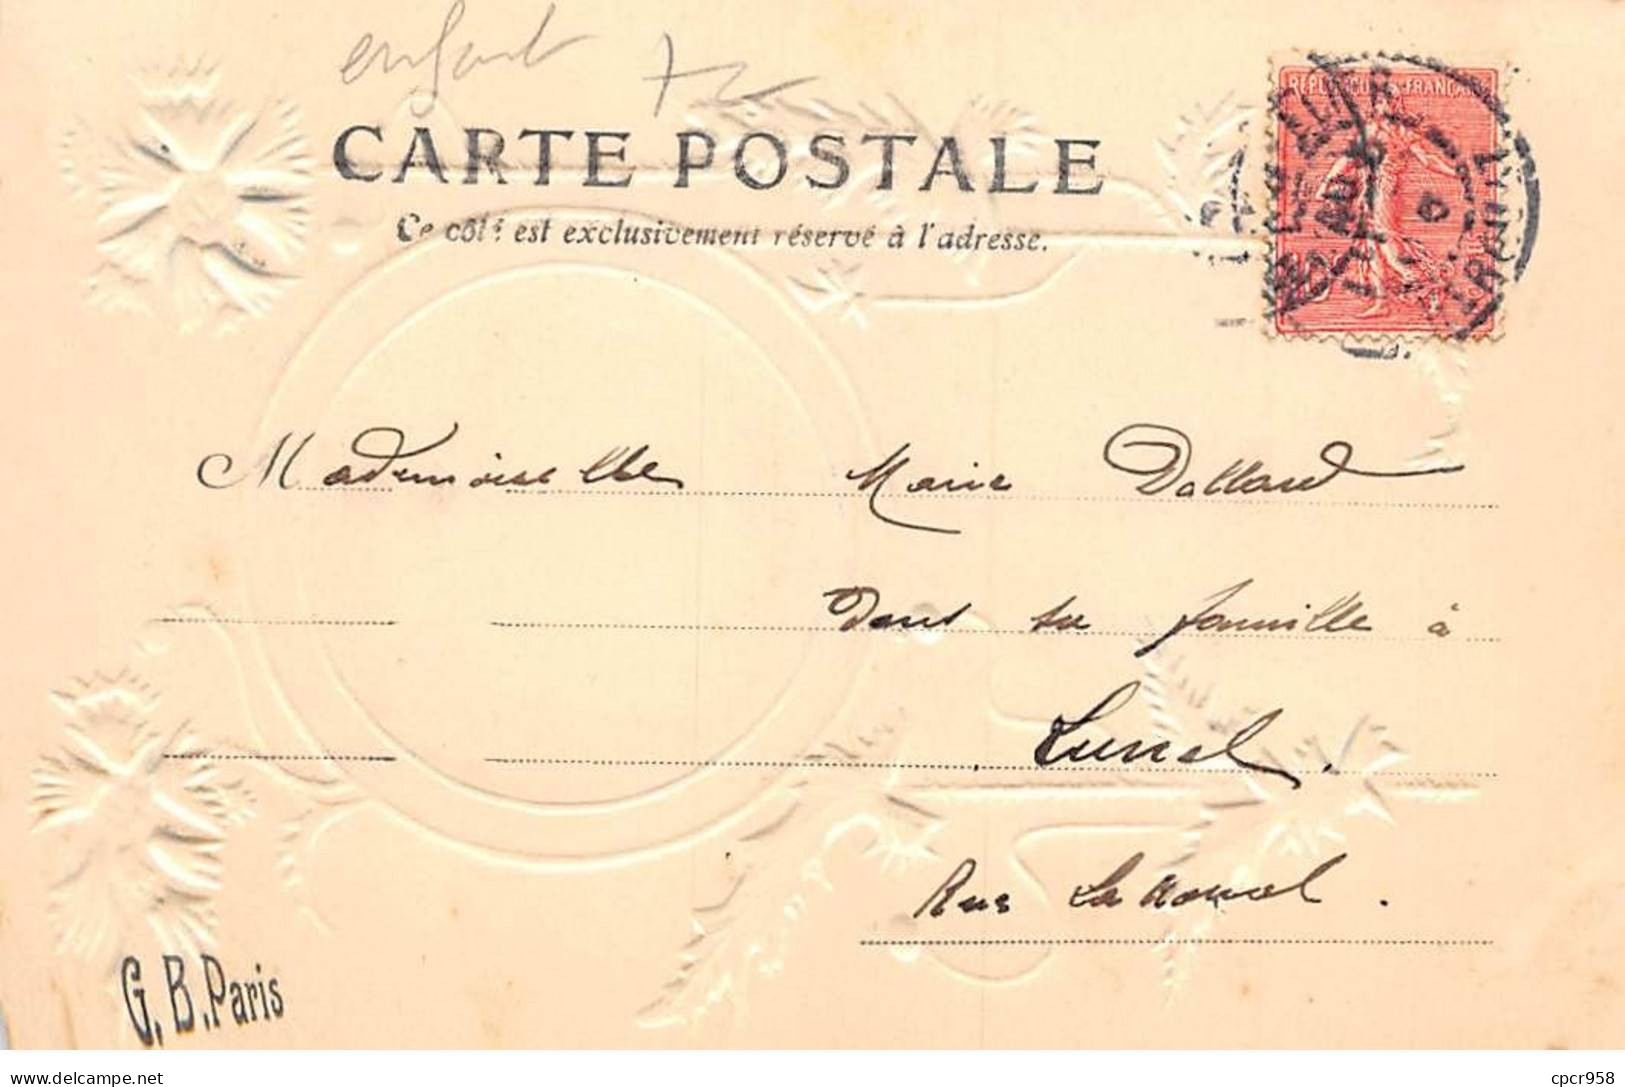 enfant
CARTE POSTALE
Ce côté est exclusivement réservé à l'adresse.
RÉPUBLIQUE FRANÇAISE
Mademoiselle Marie Dollard
Dans sa famille à
Lunel.
Rue
G. B. Paris
delcampe.net
cpcr958